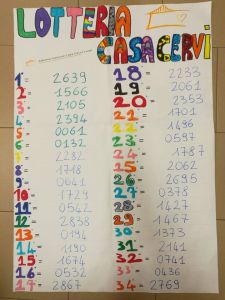 LOTTERIA
CASACERVI
1°= 2639
2= 1566
3= 2105
4= 2394
5= 0061
6= 0132
7= 2282
8= 1718
9= 0641
10= 1729
11= 0542
12= 2838
13= 0194
14= 1190
15= 1674
16= 0532
17= 2867
18= 2233
19= 2061
20= 2353
21= 1701
22= 1486
23= 0597
24= 1787
25= 2062
26= 2695
27= 0378
28= 1427
29= 1467
30= 1373
31= 2141
32= 0741
33= 0436
34= 2769